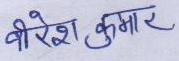 वीरेश कुमार